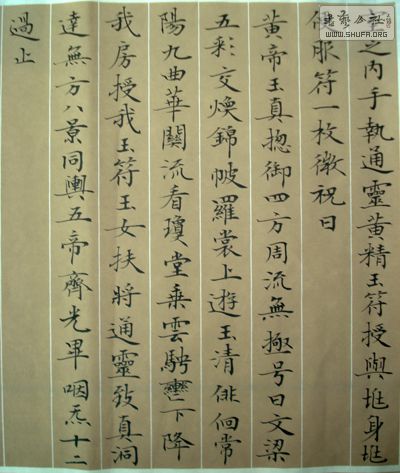 之内手執通靈黄精玉符授與垗身垗
服符一枚微祝曰
黄帝玉真揔御四方周流無極号曰文梁
五彩交煥錦帔羅裳上遊玉清俳佪常
陽九曲華關流看瓊堂乗雲駃轡下降
我房授我玉符玉女扶將通靈致真洞
達無方八景同輿五帝齊光畢咽炁十二
過止
書藝公社
WWW.SHUFA.ORG